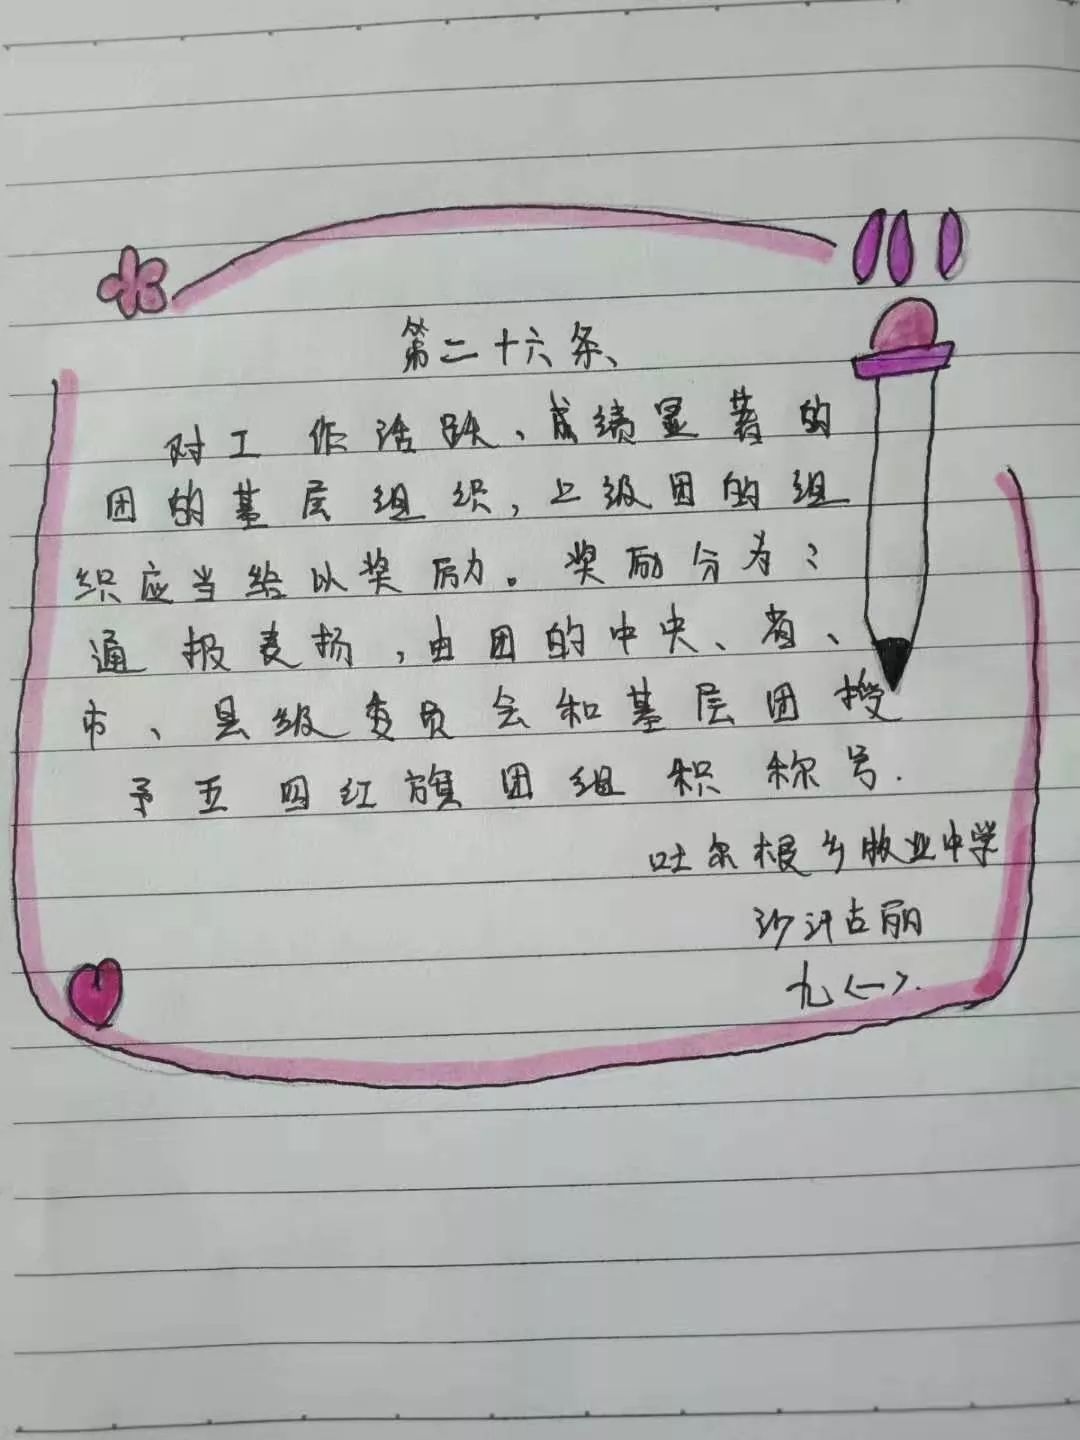 第二十六条、
对工作活跃、成绩显著的
团的基层组织，上级团的组
织应当给以奖励。奖励分为：
通报表扬，由团的中央、省、
市、县级委员会和基层团授
予五四红旗团组织称号.
吐尔根乡牧业中学
沙汗古丽
九<一>.